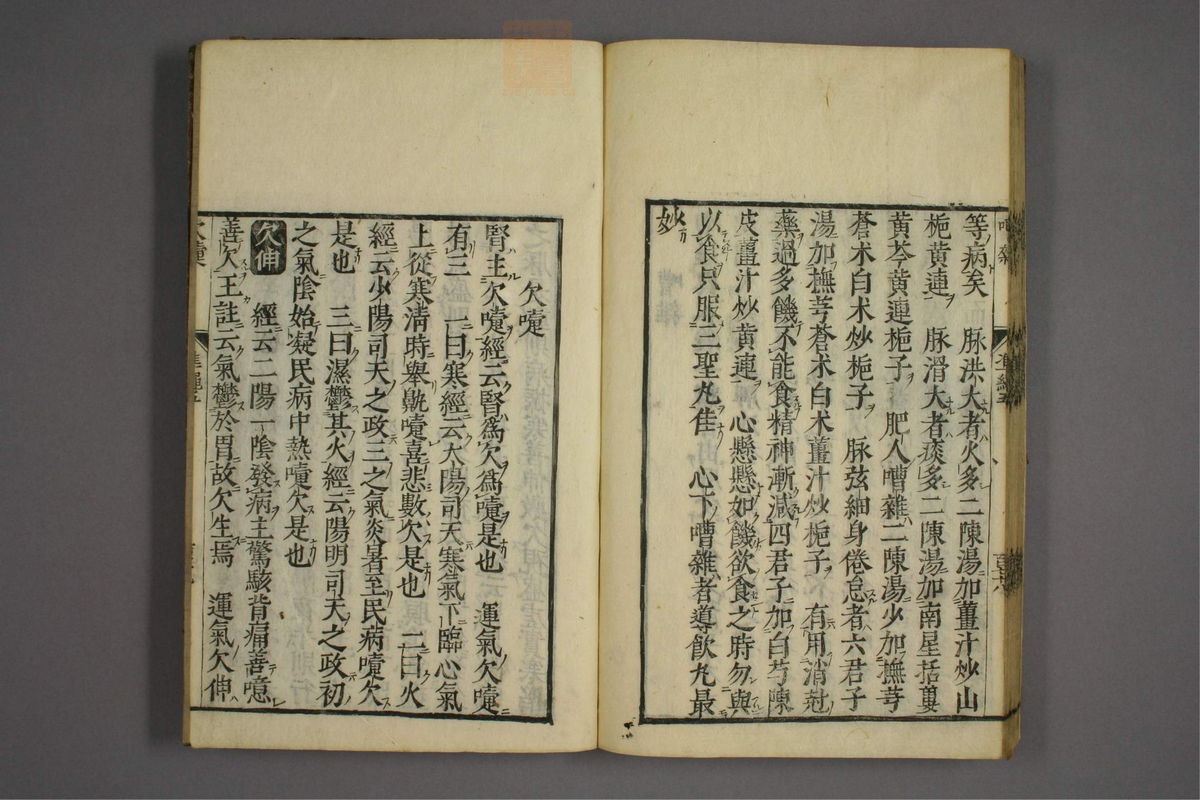 等病矣　脉洪大者火多二陳湯加薑汁炒山
梔黃連　脉滑大者痰多二陳湯加南星括蔞
黃芩黃連梔子　肥人嘈雜二陳湯少加撫芎
蒼术白术炒梔子　脉弦細身倦怠者六君子
湯加撫芎蒼术白术薑汁炒梔子　有用消尅
藥過多饑不能食精神漸減四君子加白芍陳
皮薑汁炒黃連　心懸懸如饑欲食之時勿與
以食只服三聖丸佳　心下嘈雜者導飲丸最
妙
欠嚏
腎主欠嚏經云腎爲欠爲嚏是也　運氣欠嚏
有三　一曰寒經云太陽司天寒氣下臨心氣
上從寒清時舉鼽嚏喜悲數欠是也　二曰火
經云少陽司天之政三之氣炎暑至民病嚏欠
是也　三曰濕鬱其火經云陽明司天之政初
之氣陰始凝民病中熱嚏欠是也
欠伸　經云二陽一陰發病主驚駭背痛善噫
善欠王註云氣鬱於胃故欠生焉　運氣欠伸
欠嚏